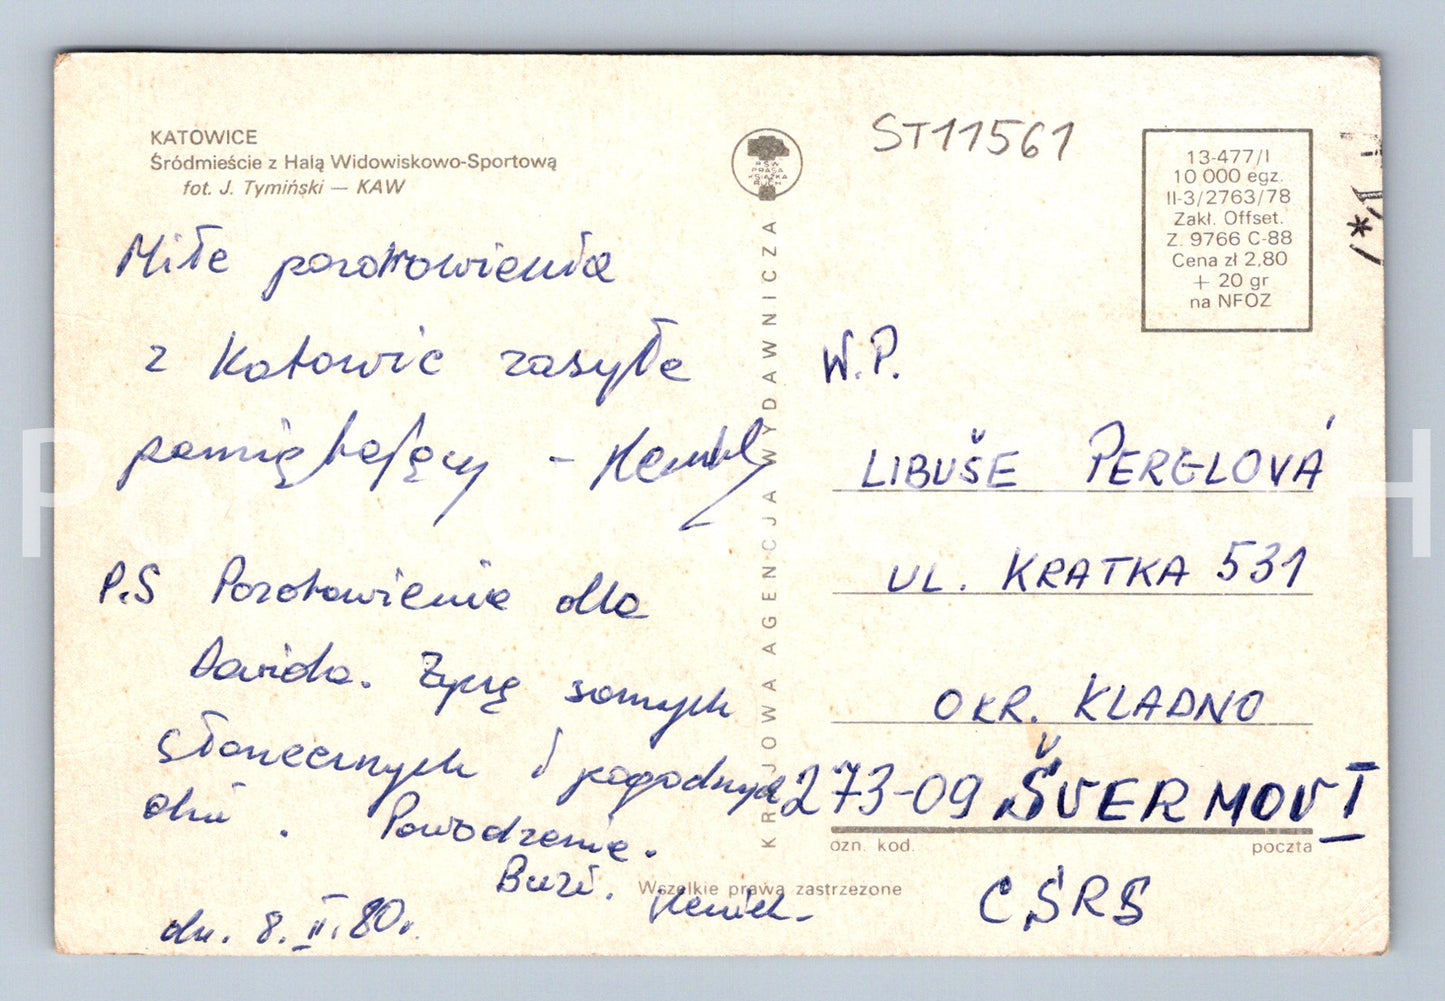 KATOWICE
Śródmieście z Halą Widowiskowo-Sportową
fot. J. Tymiński — KAW
Miłe pozdrowienia
z Katowic zasyła
pamiętający -
P.S Pozdrowienia dla
Davida. Życzę samych
słonecznych i pogodnych
dni. Powodzenia.
Buzi. Heniek-
dn. 8.II.80r.
RSW
PRASA
KSIĄŻKA
RUCH
KRAJOWA AGENCJA WYDAWNICZA
Wszelkie prawa zastrzeżone
ST11561
13-477/I
10 000 egz.
II-3/2763/78
Zakł. Offset.
Z. 9766 C-88
Cena zł 2,80
+ 20 gr
na NFOZ
W.P.
LIBUŠE PERGLOVÁ
UL. KRATKA 531
OKR. KLADNO
273-09 ŠVERMOV I
ozn. kod. poczta
CSRS